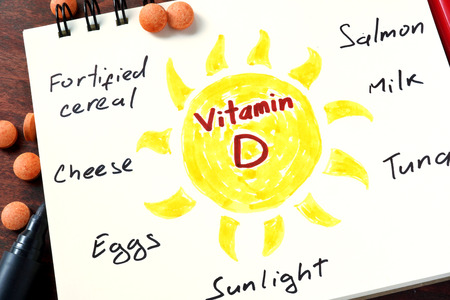 Fortified
cereal
Cheese
Eggs
Vitamin
D
Sunlight
Salmon
Milk
Tuna